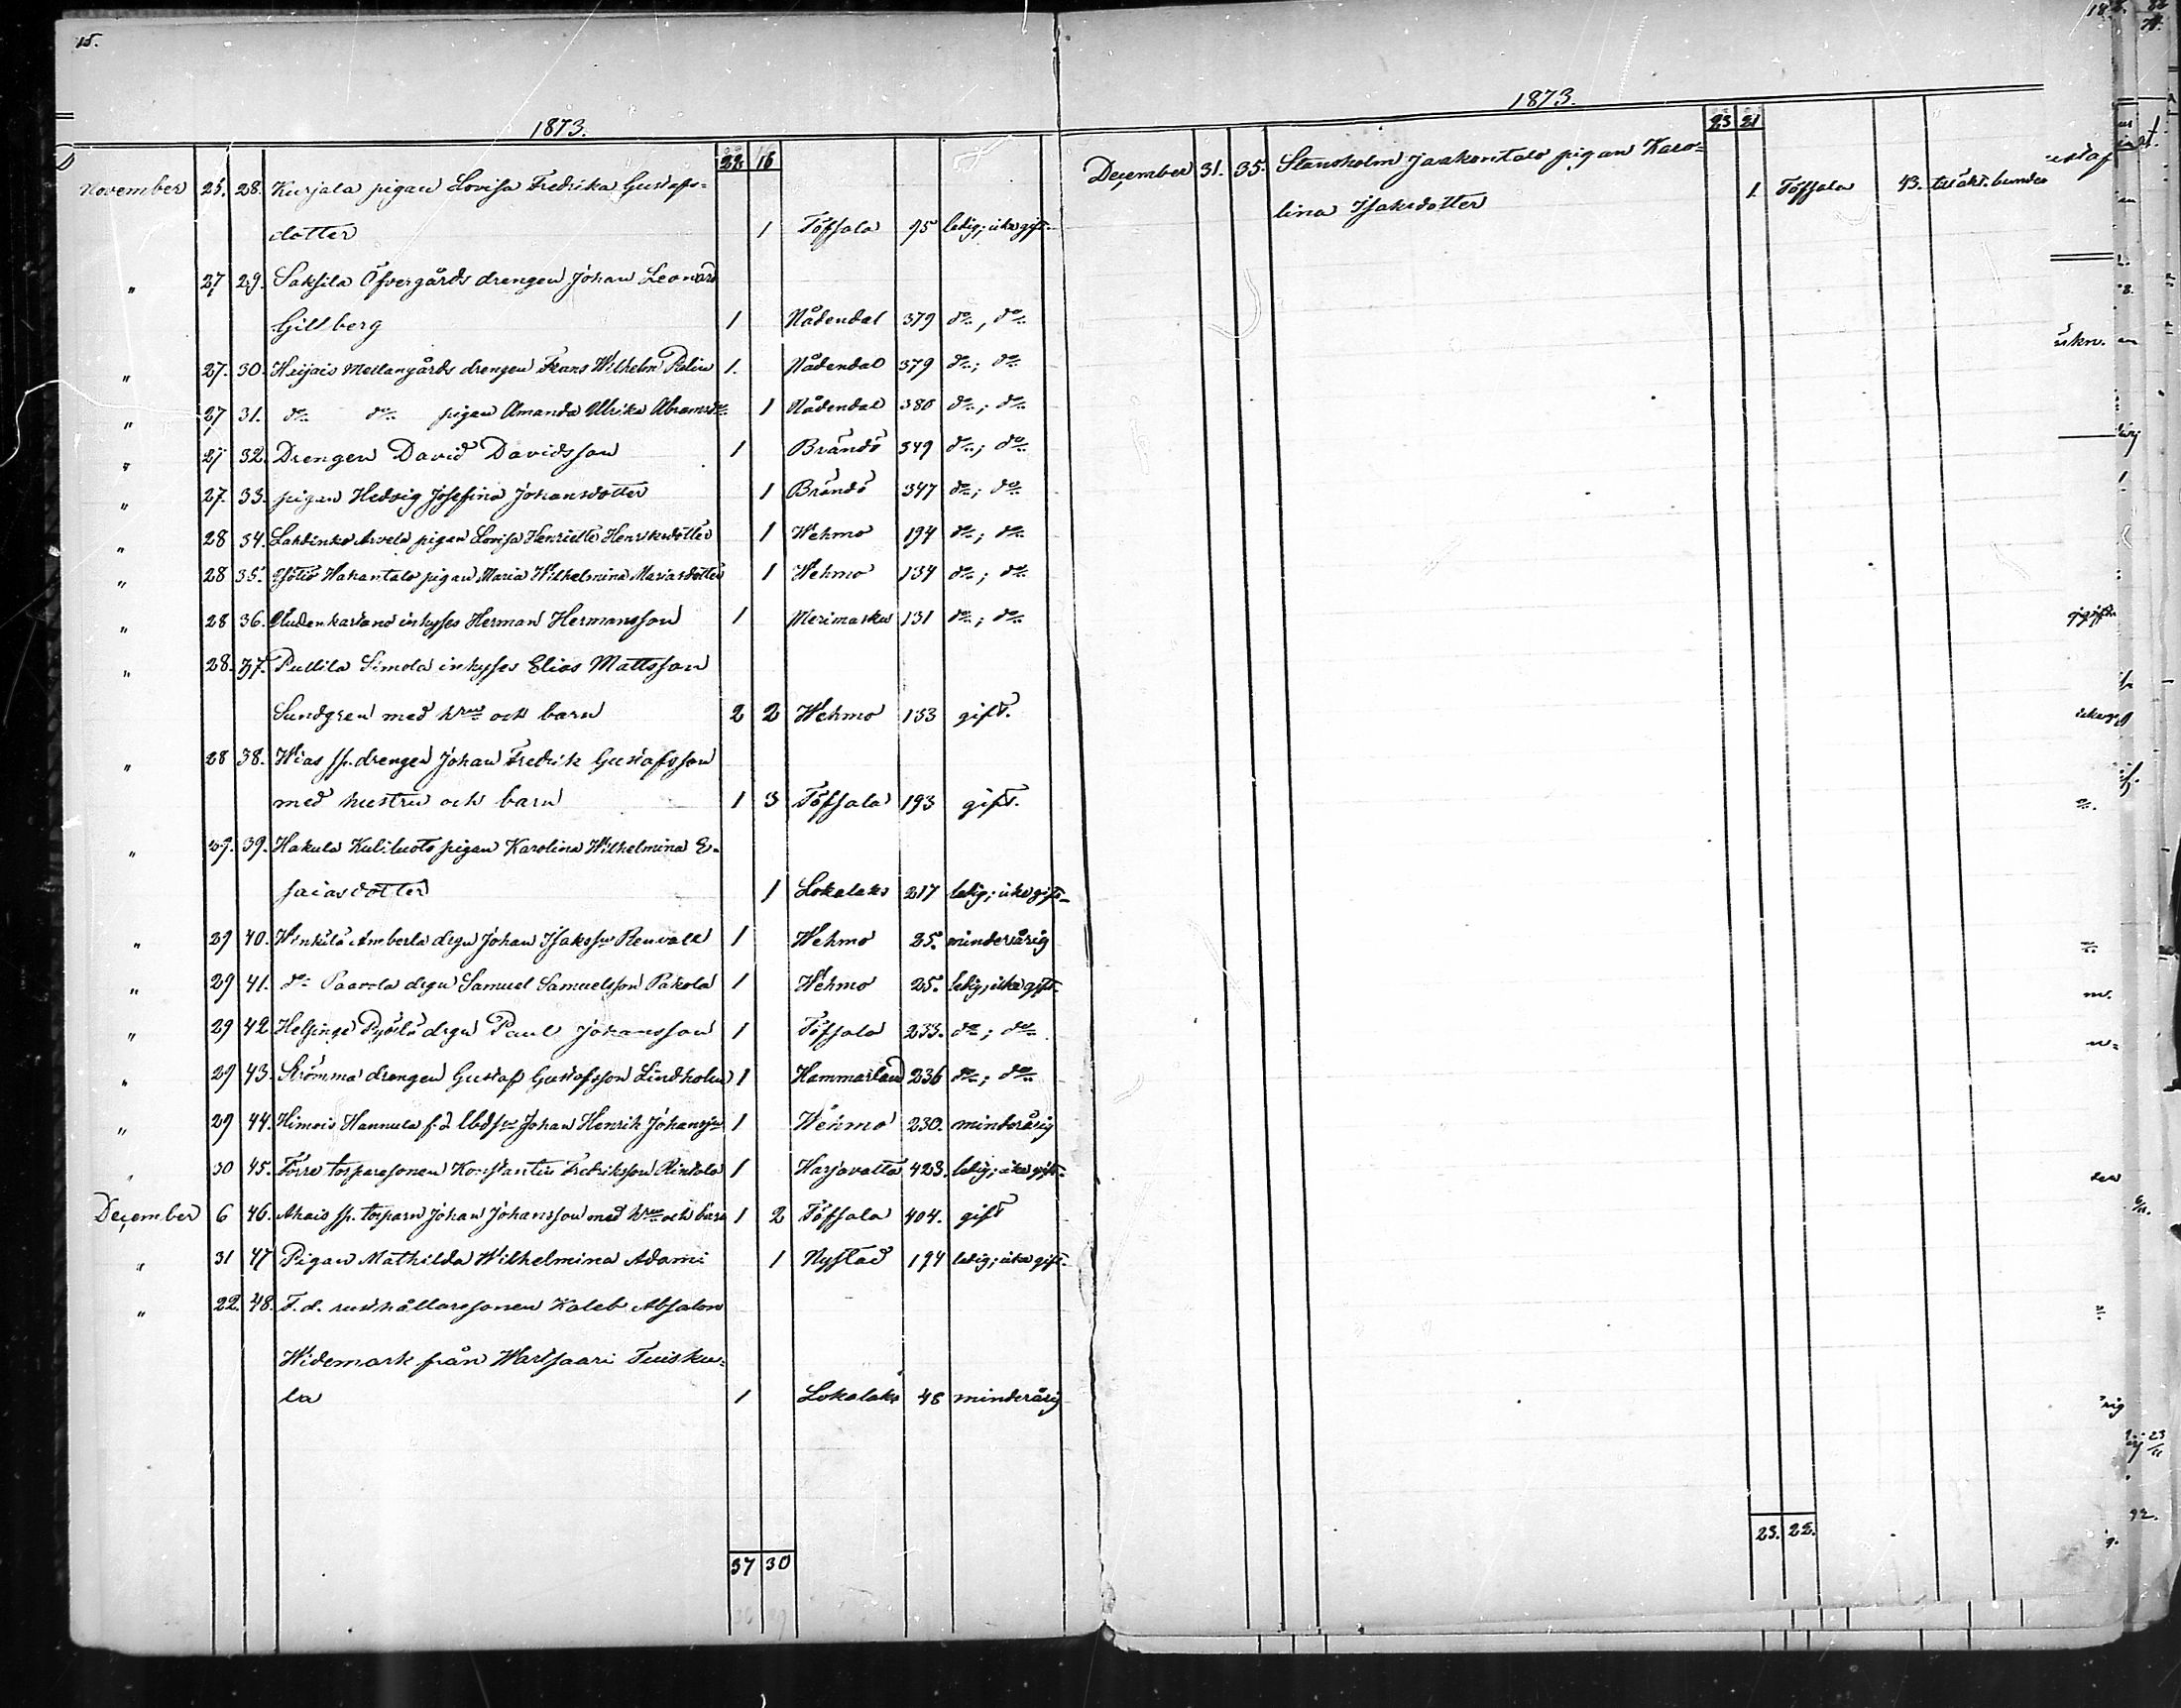 15.
1873.
23. 16
November 25. 28. Kurjala pigan Lovisa Fredrika Gustafs-
dotter 1 Töfsala 95 ledig; icke gift.
" 27 29. Saksila Öfvergårds drengen Johan Leonard
Gillberg 1 Nådendal 379 do, do
" 27. 30. Heijais Mellangårds drengen Frans Wilhelm Relin 1. Nådendal 379 do; do
" 27 31. do do pigan Amanda Ulrika Abramsdr 1 Nådendal 380 do; do
" 27 32. Drengen David Davidsson 1 Brändö 349 do; do
" 27. 33. pigan Hedvig Josefina Johansdotter 1 Brändö 347 do; do
" 28 34. Lahdinko Arvela pigan Lovisa Henriette Henriksdotter 1 Wehmo 194 do; do
" 28 35. Hakantalo pigan Maria Wilhelmina Mariasdotter 1 Wehmo 134 do; do
" 28 36. inhyses Herman Hermansson 1 Merimasku 131 do; do
" 28. 37. Pullila Simola inhyses Elias Mattsson
Sundgren med hru och barn 2 2 Wehmo 133 gift.
" 28 38. Wias sp. drengen Johan Fredrik Gustafsson
med hustru och barn 1 3 Töfsala 193 gift.
" 29. 39. Hakula Kuliluoto pigan Karolina Wilhelmina E-
saiasdotter 1 Lokalaks 217 ledig; icke gift-
" 29 40. Winkilä Amberla drgn Johan Isaksson Renvall 1 Wehmo 25. minderårig
" 29 41. do Paavola drgn Samuel Samuelsson Pakola 1 Wehmo 25. ledig; icke gift.
" 29 42 Helsinge Pyölö drgn Paul Johansson 1 Töfsala 233. do; do
" 29 43. Strömma drengen Gustaf Gustafsson Lindholm 1 Hammarland 236 do; do
" 29 44. Himois Hannula f.d. lbdsn Johan Henrik Johansson 1 Wehmo 230. minderårig
" 30 45. Torre torparesonen Konstantin Fredriksson Rintala 1 Harjavalta 423. ledig; icke gift.
December 6 46. Ahais sp. torparn Johan Johansson med hru och barn 1 2 Töfsala 404. gift
" 31 47 Pigan Mathilda Wilhelmina Adami 1 Nystad 194 ledig; icke gift.
" 22. 48. F.d. rusthållaresonen Kaleb Absalon
Widemark från Wartsaari Tuisku-
la 1 Lokalaks 48 minderårig
37 30
1873.
23 21
December 31. 35. Stensholm Jaakontalo pigan Karo-
lina Isaksdotter 1 Töfsala 43. till äkt. bunden
23. 22.